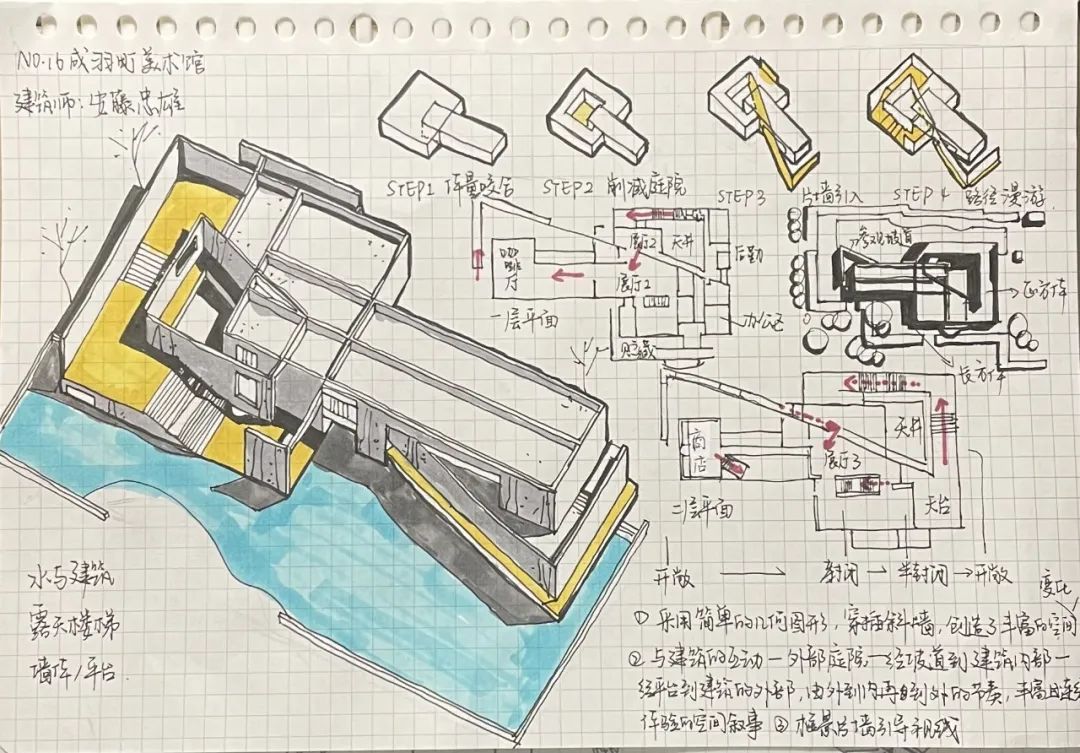 NO.16 成羽町美术馆
建筑师：安藤忠雄
STEP1 体量咬合
STEP2 削减庭院
STEP3 片墙引入
STEP4 路径漫游
咖啡厅
展厅2
天井
展厅1
后勤
办公区
贮藏
一层平面
参观坡道
正方体
长方体
商店
天井
展厅3
天台
二层平面
开敞 → 封闭 → 半封闭 → 开敞
水与建筑
露天楼梯
墙体/平台
① 采用简单的几何图形，穿插斜墙，创造了丰富的空间变化
② 与建筑的互动—外部庭院—经坡道到建筑内部—
经平台到建筑的外部，由外到内再自到外的节奏，丰富且连续
体验的空间叙事 ③ 框景片墙引导视线